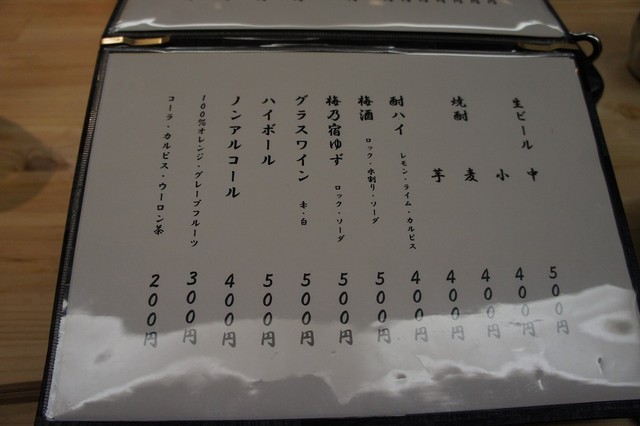 生ビール 中 500円
小 400円
焼酎 麦 400円
芋 400円
酎ハイ レモン・ライム・カルピス 400円
梅酒 ロック・水割り・ソーダ 500円
梅乃宿ゆず ロック・ソーダ 500円
グラスワイン 赤・白 500円
ハイボール 500円
ノンアルコール 400円
100%オレンジ・グレープフルーツ 300円
コーラ・カルピス・ウーロン茶 200円